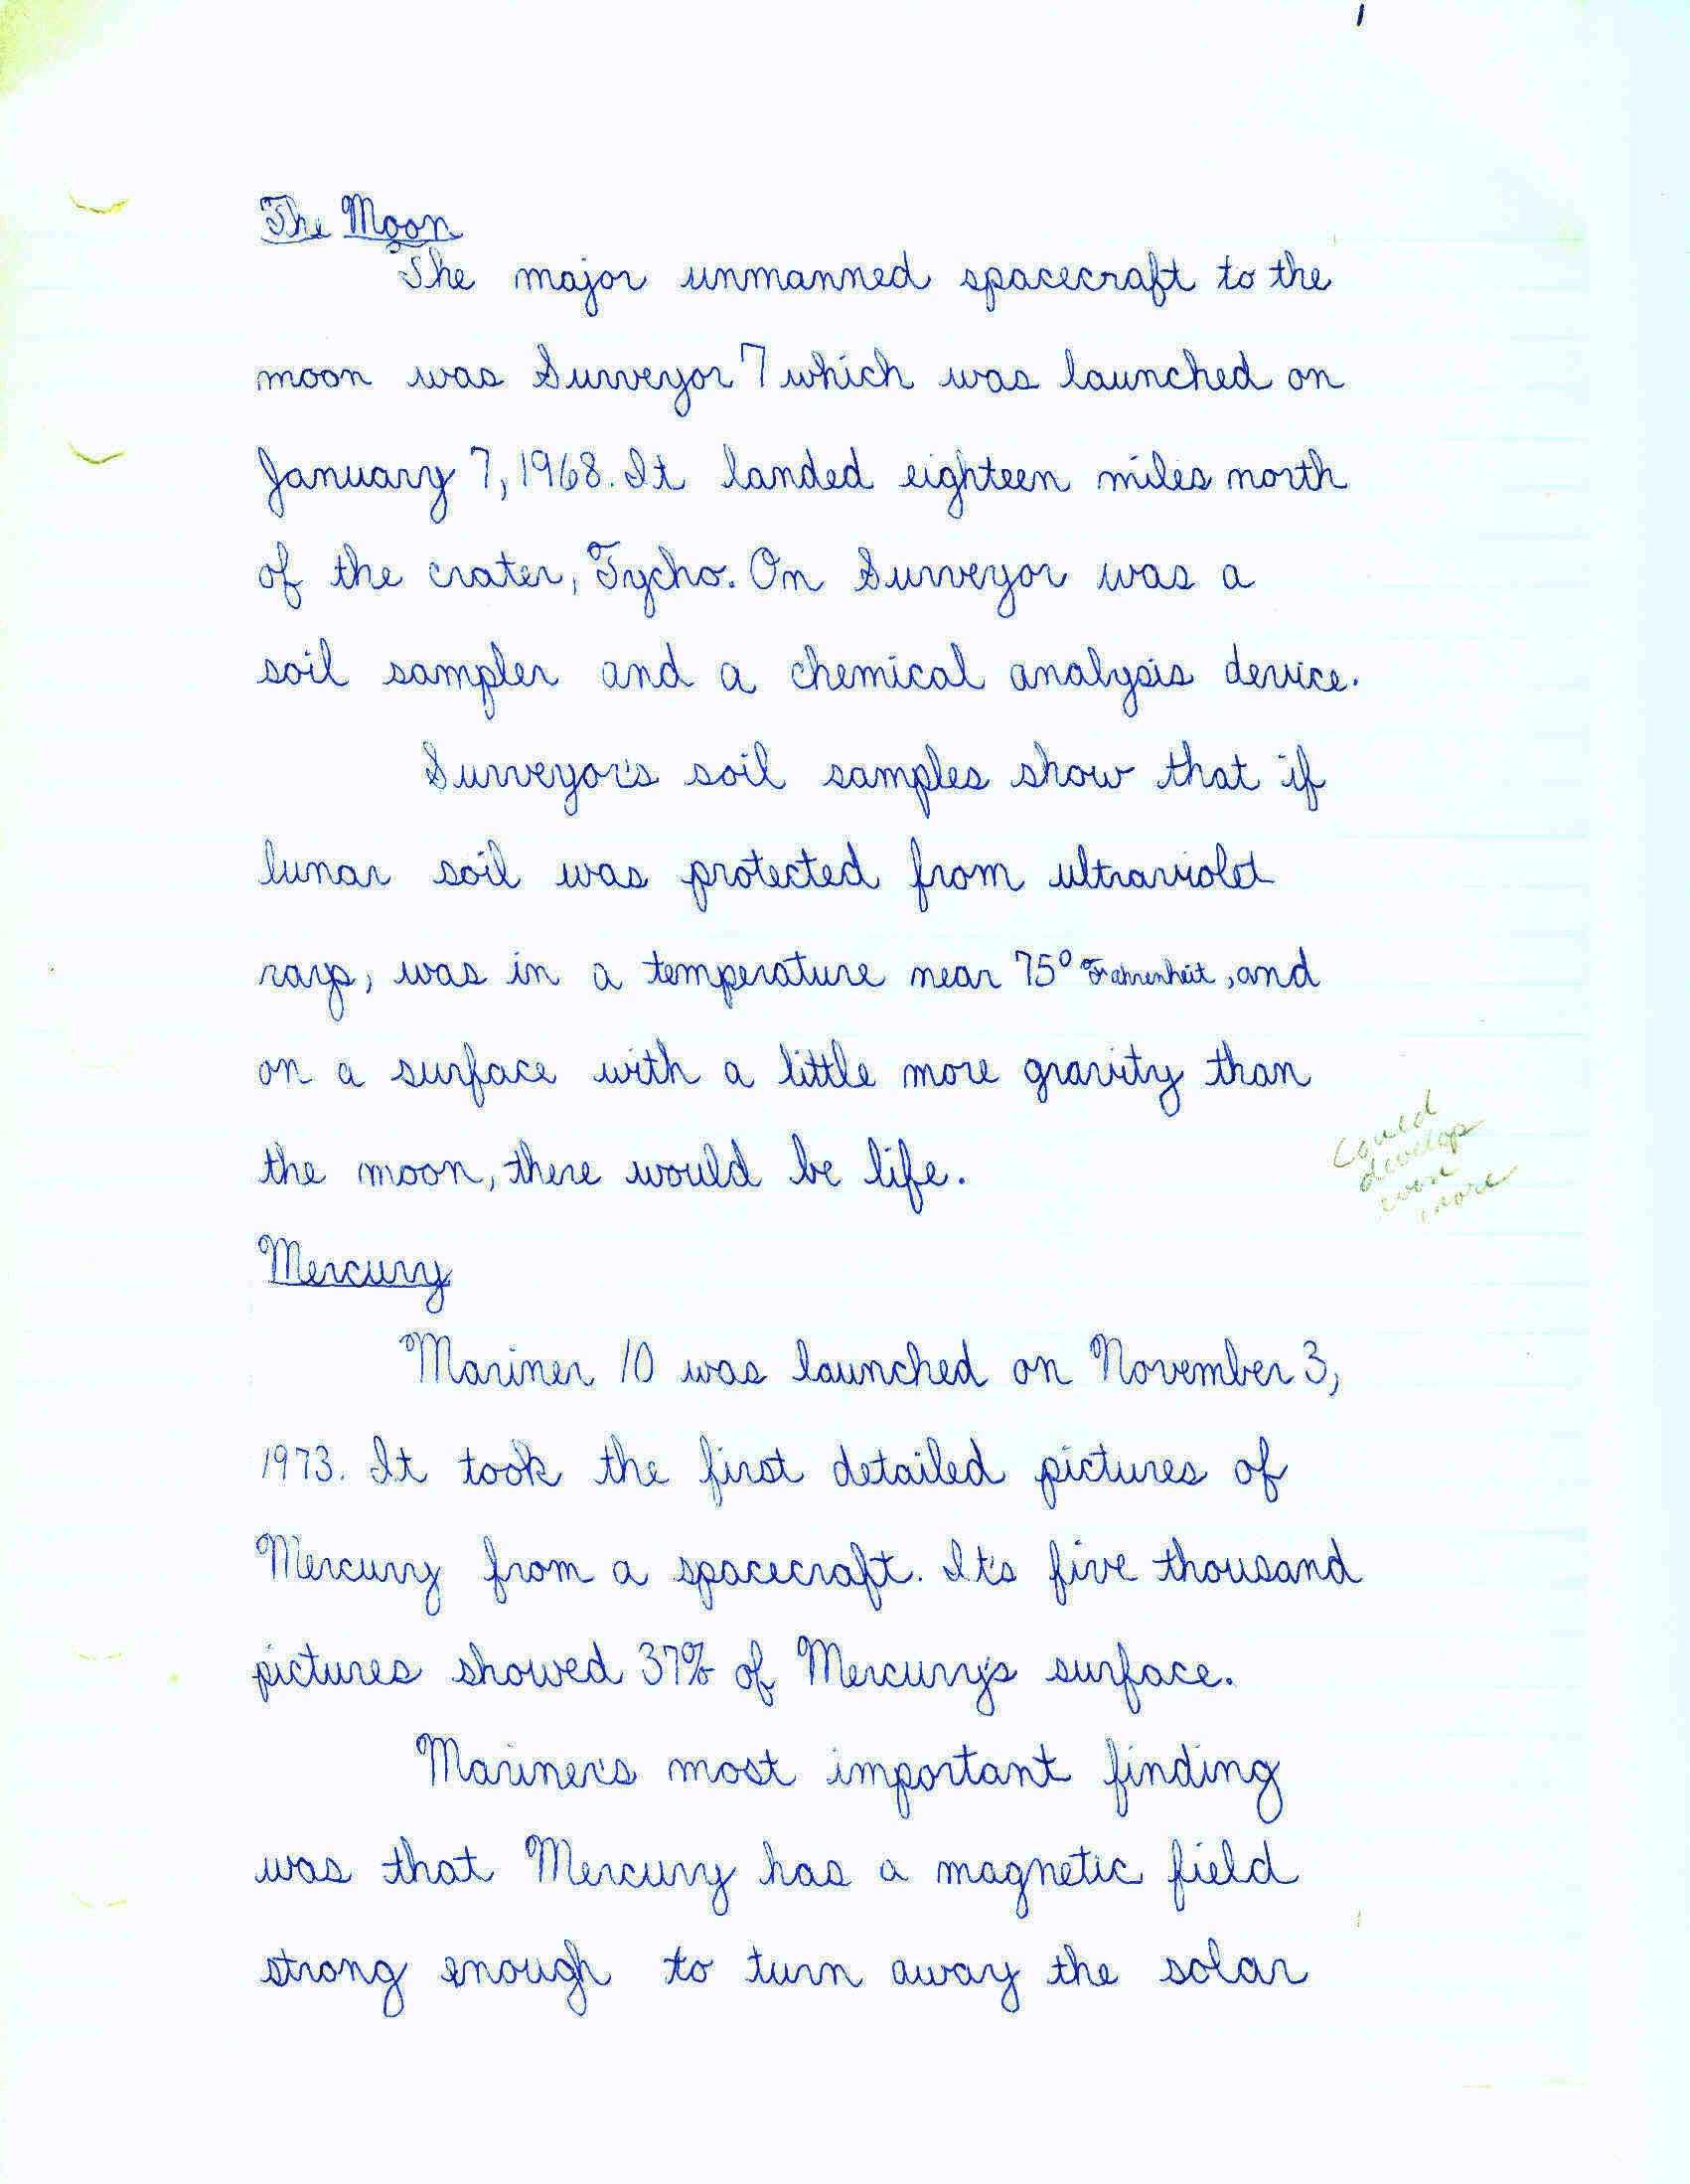 1
The Moon
The major unmanned spacecraft to the
moon was Surveyor 7 which was launched on
January 7, 1968. It landed eighteen miles north
of the crater, Tycho. On Surveyor was a
soil sampler and a chemical analysis device.
Surveyor's soil samples show that if
lunar soil was protected from ultraviolet
rays, was in a temperature near 75° Fahrenheit, and
on a surface with a little more gravity than
the moon, there would be life.
Could
develop
even
more
Mercury
Mariner 10 was launched on November 3,
1973. It took the first detailed pictures of
Mercury from a spacecraft. It's five thousand
pictures showed 37% of Mercury's surface.
Mariner's most important finding
was that Mercury has a magnetic field
strong enough to turn away the solar